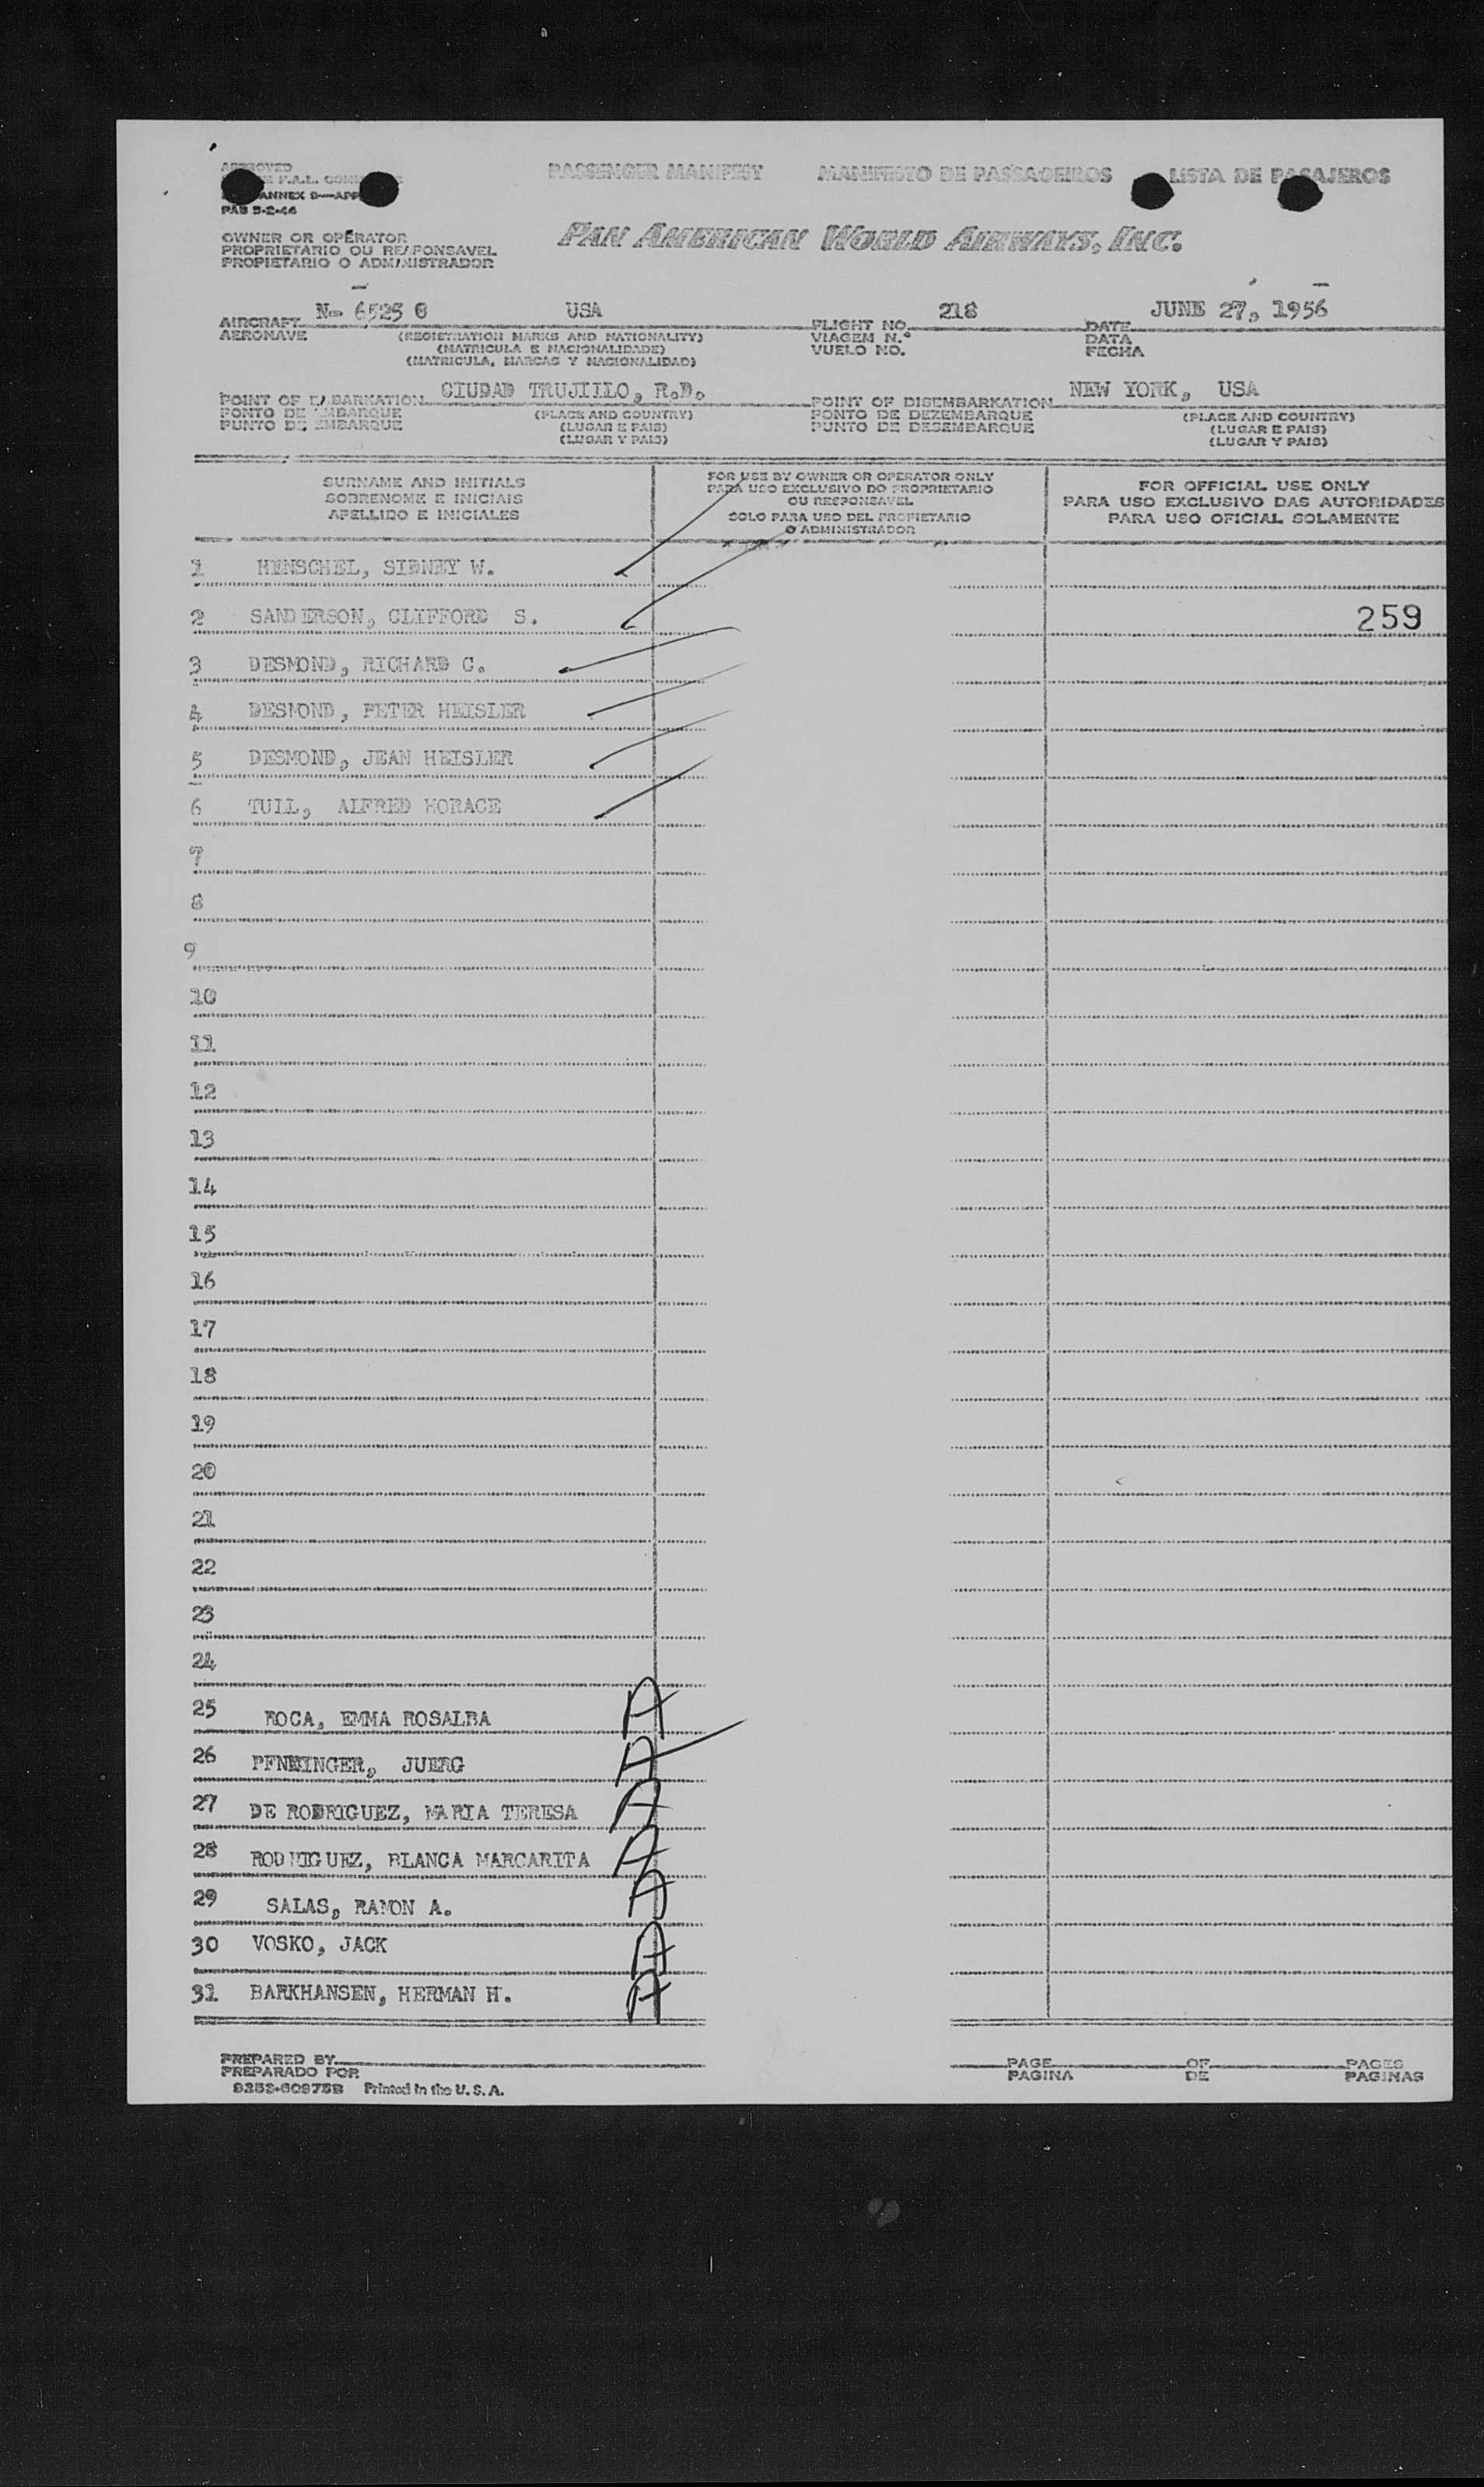 APPROVED
F.A.L.
ANNEX 9—APP
PAB 5-2-46
PASSENGER MANIFEST MANIFESTO DE PASSAGEIROS LISTA DE PASAJEROS
OWNER OR OPERATOR
PROPRIETARIO OU RESPONSAVEL
PROPIETARIO O ADMINISTRADOR
PAN AMERICAN WORLD AIRWAYS, INC.
AIRCRAFT N- 6525 USA FLIGHT NO. 218 DATE JUNE 27, 1956
AERONAVE (REGISTRATION MARKS AND NATIONALITY) VIAGEM N.º DATA
(MATRICULA E NACIONALIDADE) VUELO NO. FECHA
(MATRICULA, MARCAS Y NACIONALIDAD)
POINT OF EMBARKATION CIUDAD TRUJILLO, R.D. POINT OF DISEMBARKATION NEW YORK, USA
PONTO DE EMBARQUE (PLACE AND COUNTRY) PONTO DE DEZEMBARQUE (PLACE AND COUNTRY)
PUNTO DE EMBARQUE (LUGAR E PAIS) PUNTO DE DESEMBARQUE (LUGAR E PAIS)
(LUGAR Y PAIS) (LUGAR Y PAIS)
SURNAME AND INITIALS
SOBRENOME E INICIAIS
APELLIDO E INICIALES
FOR USE BY OWNER OR OPERATOR ONLY
PARA USO EXCLUSIVO DO PROPRIETARIO
OU RESPONSAVEL
SOLO PARA USO DEL PROPIETARIO
O ADMINISTRADOR
FOR OFFICIAL USE ONLY
PARA USO EXCLUSIVO DAS AUTORIDADES
PARA USO OFICIAL SOLAMENTE
1 HENSCHEL, SIDNEY W.
2 SANDERSON, CLIFFORD S. 259
3 DESMOND, RICHARD C.
4 DESMOND, PETER HEISLER
5 DESMOND, JEAN HEISLER
6 TULL, ALFRED HORACE
7
8
9
10
11
12
13
14
15
16
17
18
19
20
21
22
23
24
25 ROCA, EMMA ROSALBA A
26 PFNNINGER, JUERG A
27 DE RODRIGUEZ, MARIA TERESA A
28 RODRIGUEZ, BLANCA MARGARITA A
29 SALAS, RAMON A. A
30 VOSKO, JACK A
31 BARKHANSEN, HERMAN H. A
PREPARED BY PAGE OF PAGES
PREPARADO POR PAGINA DE PAGINAS
9252-60975B Printed in the U. S. A.